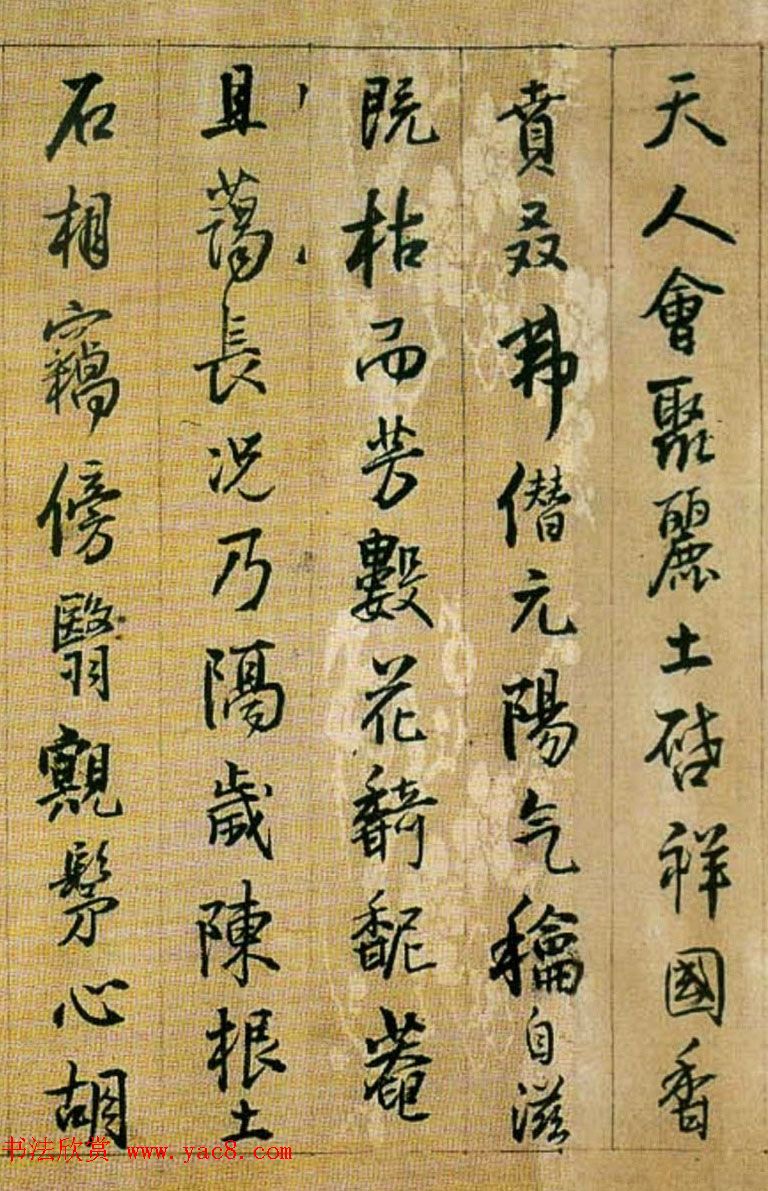 天人會聚麗土啓祥國香
賁叒茀僭元陽气穐自滋
既枯而芳數花馣馜菴
且蔼長况乃隔歲陳根土
石相竊傍翳觀髣心胡
书法欣赏 www.yac8.com